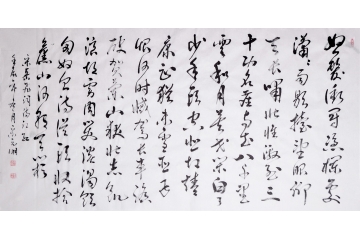 怒髮衝冠憑欄處
瀟瀟雨歇抬望眼仰
天長嘯壯懷激烈三
十功名塵與土八千里
雲和月莫等閑白了
少年頭空悲切靖
康恥猶未雪臣子
恨何時滅駕長車踏
破賀蘭山缺壯志飢
餐胡虜肉笑談渴飲
匈奴血待從頭收拾
舊山河朝天闕
宋岳飛詞滿江紅
年冬月